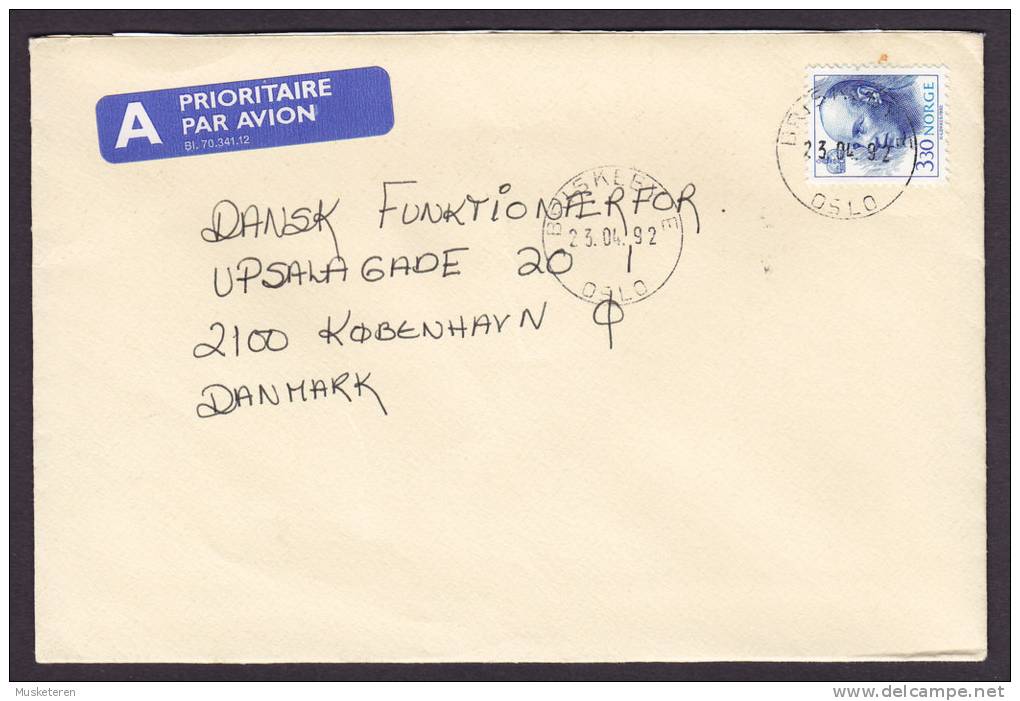 A PRIORITAIRE
PAR AVION
Bl. 70.341.12
330 NORGE
23.04.92
OSLO
DANSK FUNKTIONÆRFOR.
UPSALAGADE 20 1
2100 KØBENHAVN Ø
DANMARK
23.04.92
OSLO
Musketeren
delcampe.net